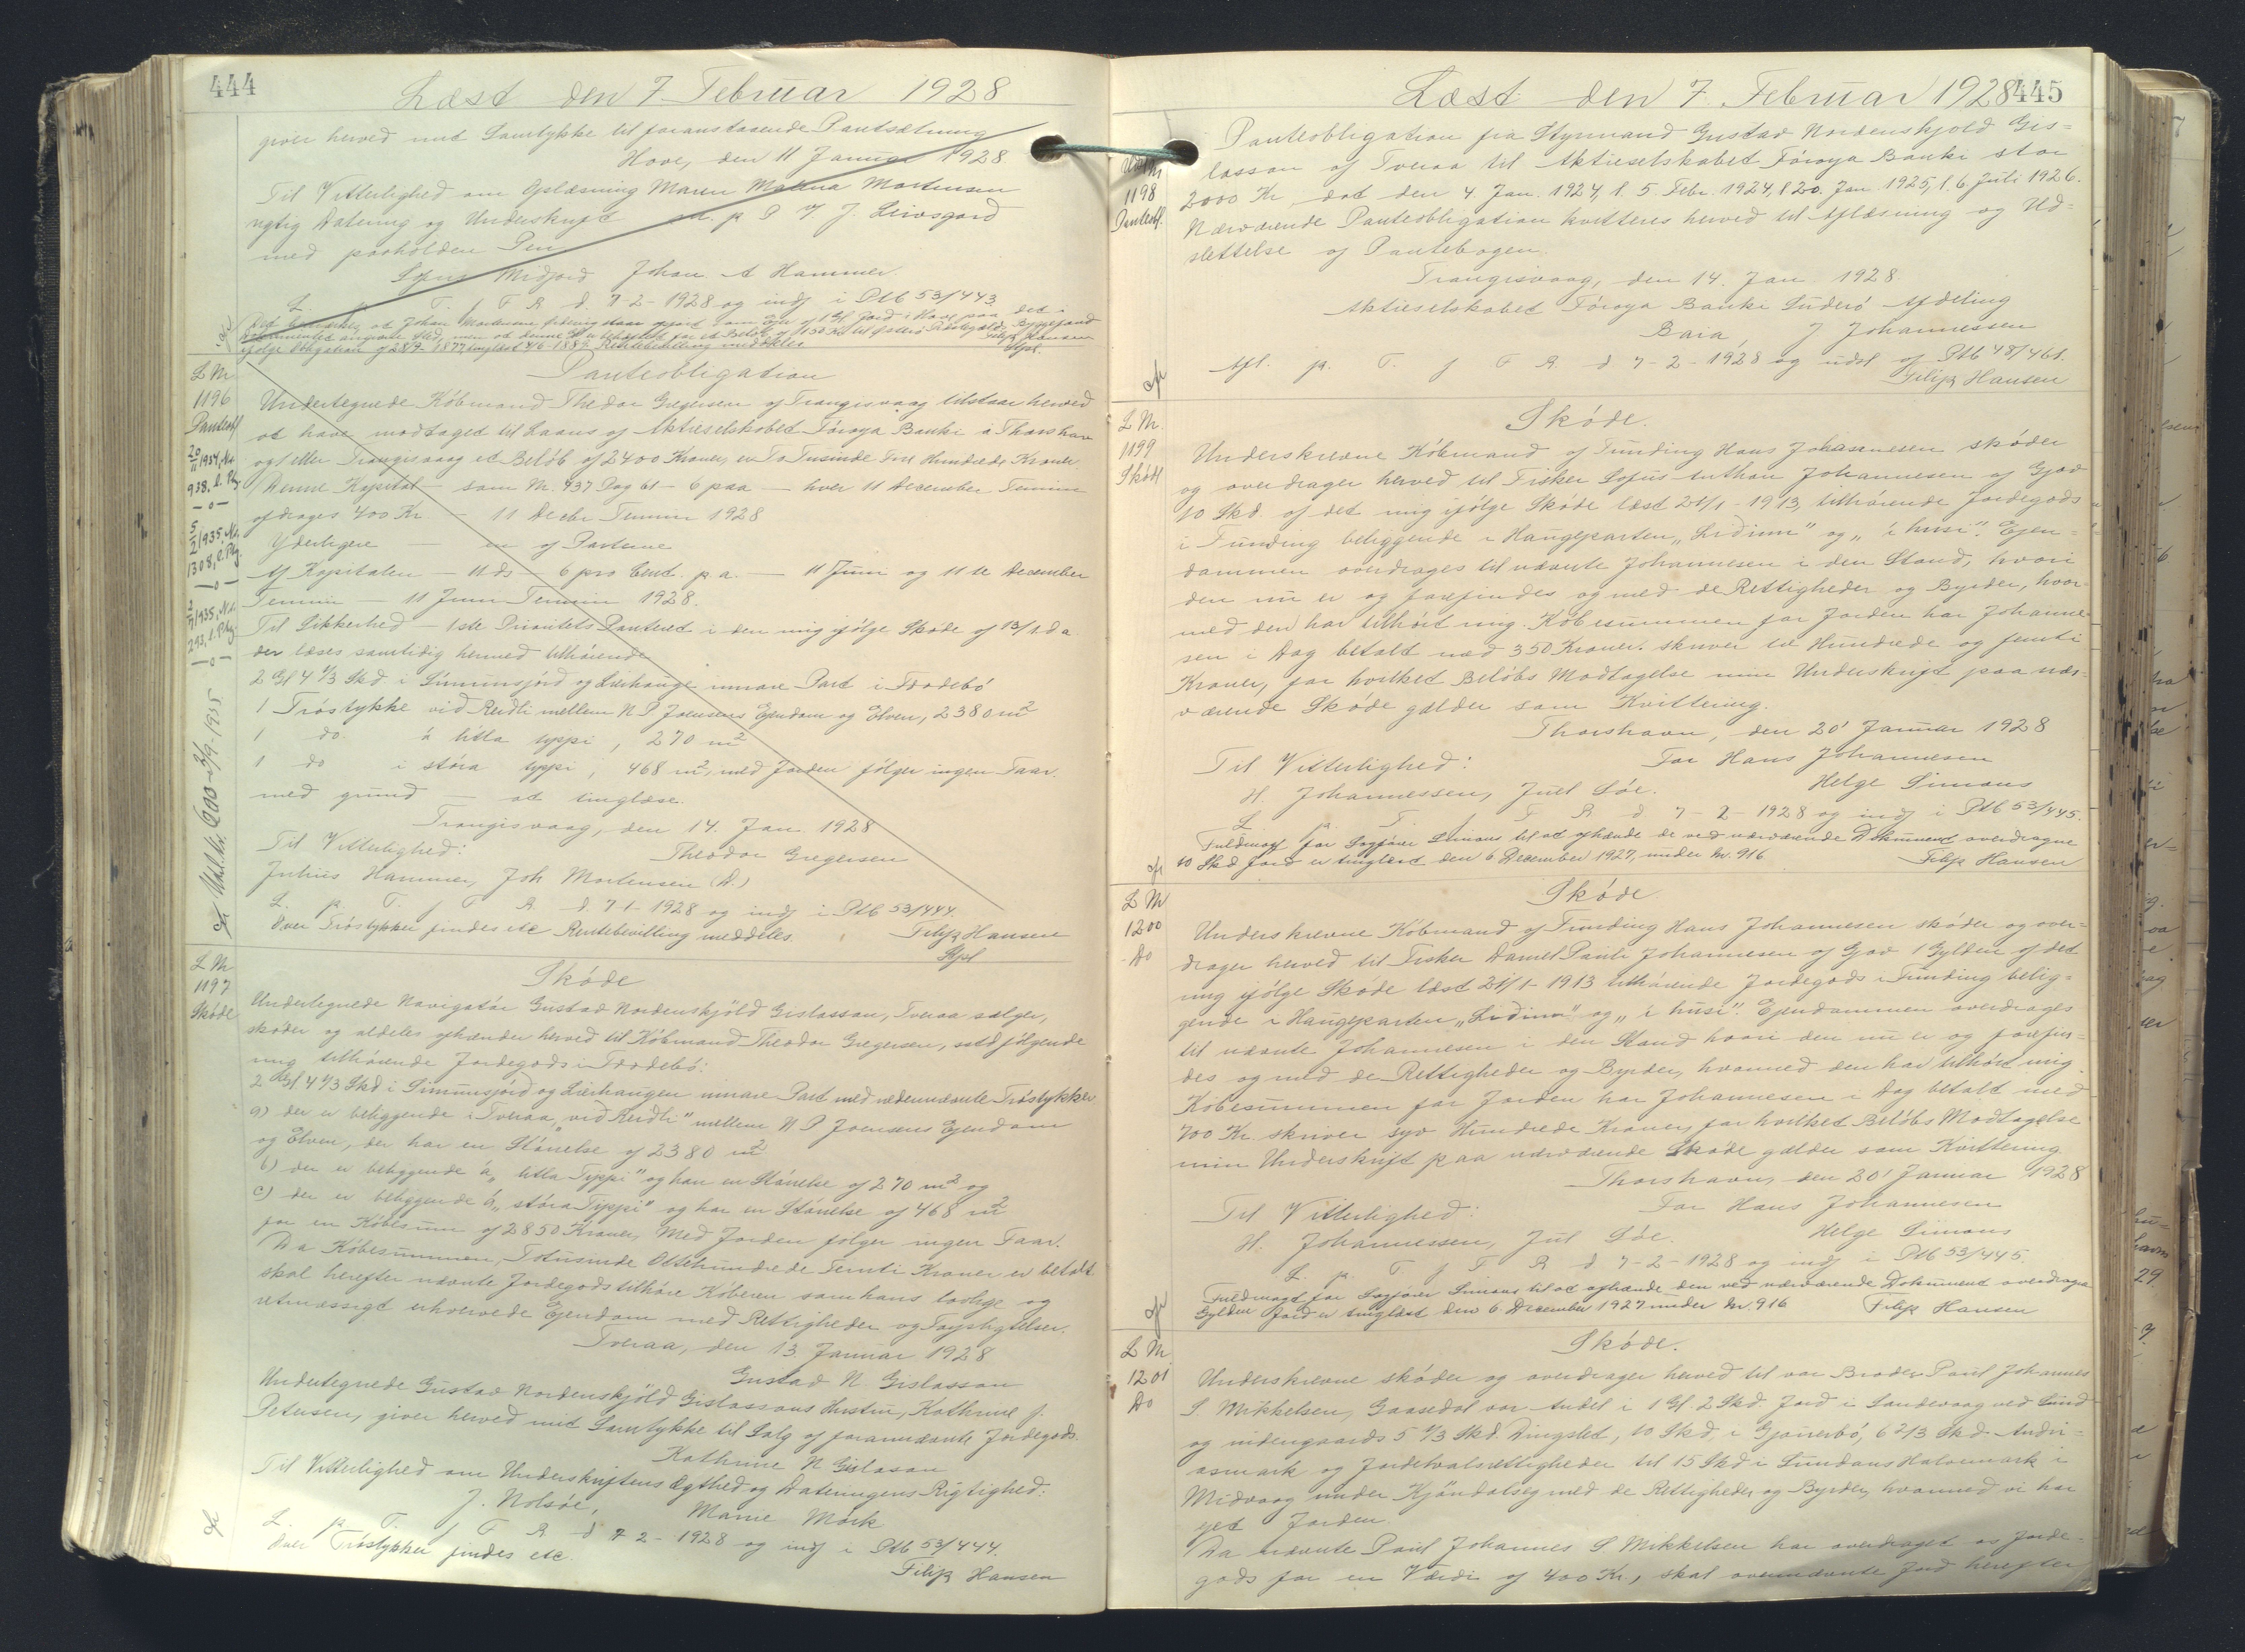 444
Læst den 7 Februar 1928
giver herved mit Samtykke til foranstaaende Pantsætning
Hove, den 11 Januar 1928
Til Vitterlighed om Oplæsning Maren Malena Mortensen
rigtig Datering og Underskrift m. p. P V. J. Leivsgard
med paaholden Pen
Sofus Midjord Johan A Hammer.
L. p. T. f F R. d. 7-2-1928 og indf i Ptb 53/443.
Filip Hansen
L Nr
1196
Panteobl
Panteobligation
Undertegnede Købmand Theodor Gregersen af Trangisvaag tilstaar herved
at have modtaget til Laans af Aktieselskabet Føroya Banki i Thorshavn
og/eller Trangisvaag et Beløb af 2400 Kroner, er To Tusinde Fire Hundrede Kroner
Denne Kapital — som Nr. 937 Pag 61 — 6 paa — hver 11 December Termin
afdrages 400 Kr — 11 Decbr Termin 1928
Yderligere — en af Parterne
Af Kapitalen — 11 ds — 6 pro Cent. p. a. — 11 Juni og 11te December
Termin — 11 Juni Termin 1928.
Til Sikkerhed — 1ste Prioritets Panteret i den mig ifølge Skøde af 13/1 d a
der læses samtidig hermed tilhørende
2 Gl 4 1/3 Skd i Simunsjørd og Lierhauge innare Part i Froðebø
1 Trøstykke við Reiðli mellem N P Joensens Ejendom og Elven, 2380 m2
1 do á litla typpi, 270 m2
1 do i stóra typpi, 468 m2, med Jorden følger ingen Faar.
med grund — at tinglæse.
Trangisvaag, den 14. Jan 1928
Til Vitterlighed: Theodor Gregersen
Julius Hammer, Joh Mortensen (A.)
L. p. T. f F R. d. 7-1-1928 og indf i Ptb 53/444.
Over Trøstykker findes etc Rentebevilling meddeles. Filip Hansen
Stpl
L Nr
1197
Skøde
Skøde
Undertegnede Navigatør Gustav Nordenskjöld Gislasson, Tveraa sælger,
skøder og aldeles afhænder herved til Købmand Theodor Gregersen, sstd følgende
mig tilhørende Jordegods i Froðebø:
2 Gl 4 1/3 Skd i Simunsjørd og Lierhaugen innare Part med nedennævnte Trøstykker
a) der er beliggende i Tveraa „við Reiðli" mellem N P Joensens Ejendom
og Elven, der har en Størrelse af 2380 m2
b) der er beliggende á „litla Typpi" og har en Størrelse af 270 m2 og
c) der er beliggende á „stóra Typpi" og har en Størrelse af 468 m2
for en Købesum af 2850 Kroner, Med Jorden følger ingen Faar.
Da Købesummen, Totusinde Ottehundrede Femti Kroner er betalt
skal herefter nævnte Jordegods tilhøre Køberen som hans lovlige og
retmæssigt erhvervede Ejendom med Rettigheder og Forpligtelser.
Tveraa, den 13 Januar 1928
Gustav N Gislasson
Undertegnede Gustav Nordenskjöld Gislassons Hustru, Kathrine J.
Petersen, giver herved mit Samtykke til Salg af forannævnte Jordegods.
Kathrine N Gislason
Til Vitterlighed om Underskriftens Ægthed og Dateringens Rigtighed:
J. Nolsøe, Marie Mörk
L. p. T. f F R d 7-2-1928 og indf i Ptb 53/444.
Over Trøstykker findes etc. Filip Hansen
Læst den 7. Februar 1928
445
1198
Panteobl.
Panteobligation fra Styrmand Gustav Nordenskjold Gis=
lasson af Tveraa til Aktieselskabet Føroya Banki stor
2000 Kr, dat den 4 Jan. 1924, l. 5 Febr. 1924, l 20. Jan 1925, l. 6 Juli 1926.
Nærværende Panteobligation kvitteres herved til Aflæsning og Ud=
slettelse af Pantebogen.
Trangisvaag, den 14. Jan 1928.
Aktieselskabet Føroya Banki Suderø Afdeling
J Johannessen
Afl. p. T. f F R. d 7-2-1928 og udsl af Ptb 48/461.
Filip Hansen
L Nr.
1199
Skøde
Skøde.
Underskrevne Købmand af Funding Hans Johannesen skøder
og overdrager herved til Fisker Sofus Anthon Johannesen af Gjov
10 Skd. af det mig ifølge Skøde læst 21/1-1913, tilhørende Jordegods
i Funding beliggende i Haugeparten „Liðinni" og „i húsi". Ejen=
dommen overdrages til nævnte Johannesen i den Stand, hvori
den nu er og forefindes og med de Rettigheder og Byrder, hvor
med den har tilhørt mig. Købesummen for Jorden har Johanne
sen i Dag betalt med 350 Kroner. skriver tre Hundrede og femti
Kroner, for hvilket Beløbs Modtagelse min Underskrift paa nær=
værende Skøde gælder som Kvittering.
Thorshavn, den 20' Januar 1928
Til Vitterlighed: For Hans Johannesen
H. Johannessen, Juul Søe. Helge Simons
L. p. T. f F R d 7-2-1928 og indf i Ptb 53/445.
Fuldmagt for Sagfører Simons til at afhænde de ved nærværende Dokument overdragne
10 Skd Jord er tinglæst den 6 December 1927, under Nr. 916. Filip Hansen
L Nr
1200
Do
Skøde
Underskrevne Købmand af Funding Hans Johannesen skøder og over=
drager herved til Fisker Daniel Pauli Johannesen af Gjov 1 Gylden af det
mig ifølge Skøde læst 21/1-1913 tilhørende Jordegods i Funding belig=
gende i Haugeparten „Liðinni" og „i húsi". Ejendommen overdrages
til nævnte Johannesen i den Stand hvori den nu er og forefin=
des og med de Rettigheder og Byrder, hvormed den har tilhørt mig.
Købesummen for Jorden har Johannesen i Dag betalt med
700 Kr. skriver syv Hundrede Kroner, for hvilket Beløbs Modtagelse
min Underskrift paa nærværende Skøde gælder som Kvittering.
Thorshavn, den 20' Januar 1928
Til Vitterlighed: For Hans Johannesen
H. Johannessen, Jul Søe. Helge Simons
L. p. T. f F R d 7-2-1928 og indf i Ptb 53/445.
Fuldmagt for Sagfører Simons til at afhænde den ved nærværende Dokument overdragne
Gylden Jord er tinglæst den 6 December 1927 under Nr. 916 Filip Hansen
L Nr
1201
Do
Skøde.
Underskrevne skøder og overdrager herved til vor Broder Paul Johannes
S. Mikkelsen, Gaasedal vor Andel i 1 Gl. 2 Skd. Jord i Sandevaag ved Sund
og nidengaards 5 1/3 Skd. Dingsled, 10 Skd i Gjonerbø, 6 2/3 Skd. Andri=
asmark og Jordetvalsrettigheder til 15 Skd i Sundans Halvemark i
Midvaag under Kjøndalseg med de Rettigheder og Byrder, hvormed vi har
ejet Jorden.
Da nævnte Paul Johannes S Mikkelsen har overdraget os Jorde=
gods for en Værdi af 400 Kr., skal ovennævnte Jord herefter